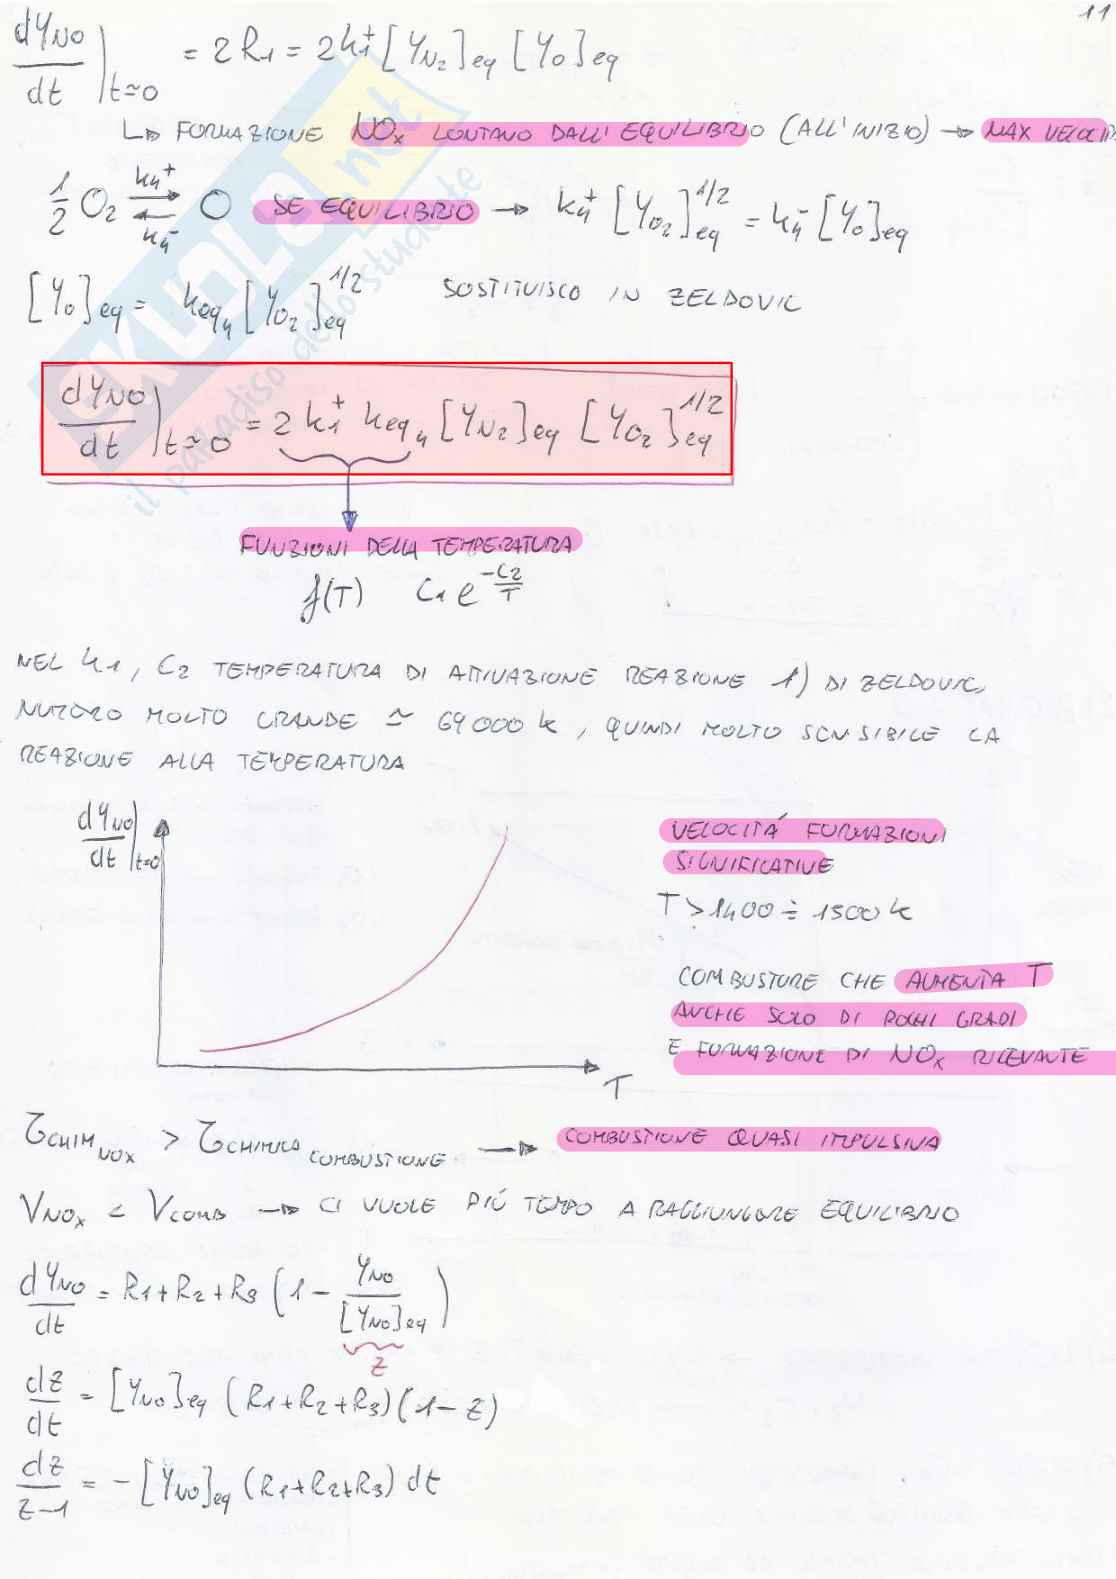 11
dY_NO/dt |_{t≃0} = 2 R_1 = 2 k_1^+ [Y_{N_2}]_{eq} [Y_O]_{eq}
↳ FORMAZIONE NO_x LONTANO DALL'EQUILIBRIO (ALL'INIZIO) → MAX VELOCITÀ
1/2 O_2 ⇄ O k_4^+ k_4^- SE EQUILIBRIO → k_4^+ [Y_{O_2}]_{eq}^{1/2} = k_4^- [Y_O]_{eq}
[Y_O]_{eq} = k_{eq_4} [Y_{O_2}]_{eq}^{1/2} SOSTITUISCO IN ZELDOVIC
dY_NO/dt |_{t≃0} = 2 k_1^+ k_{eq_4} [Y_{N_2}]_{eq} [Y_{O_2}]_{eq}^{1/2}
FUNZIONI DELLA TEMPERATURA
f(T) C_1 e^{-C_2/T}
NEL K_1, C_2 TEMPERATURA DI ATTIVAZIONE REAZIONE 1) DI ZELDOVIC,
NUMERO MOLTO GRANDE ≃ 69000 K, QUINDI MOLTO SENSIBILE LA
REAZIONE ALLA TEMPERATURA
dY_NO/dt |_{t=0}
T
VELOCITÁ FORMAZIONI
SIGNIFICATIVE
T > 1400 ÷ 1500 K
COMBUSTORE CHE AUMENTA T
ANCHE SOLO DI POCHI GRADI
E FORMAZIONE DI NO_x RILEVANTE
τ_{CHIM_{NOX}} > τ_{CHIMICA COMBUSTIONE} → COMBUSTIONE QUASI IMPULSIVA
V_{NO_x} < V_{COMB} → CI VUOLE PIÚ TEMPO A RAGGIUNGERE EQUILIBRIO
dY_NO/dt = R_1 + R_2 + R_3 (1 - Y_NO/[Y_NO]_{eq})
z
dz/dt = [Y_NO]_{eq} (R_1 + R_2 + R_3)(1 - z)
dz/(z-1) = - [Y_NO]_{eq} (R_1 + R_2 + R_3) dt
SKUOLA.net
il paradiso dello studente